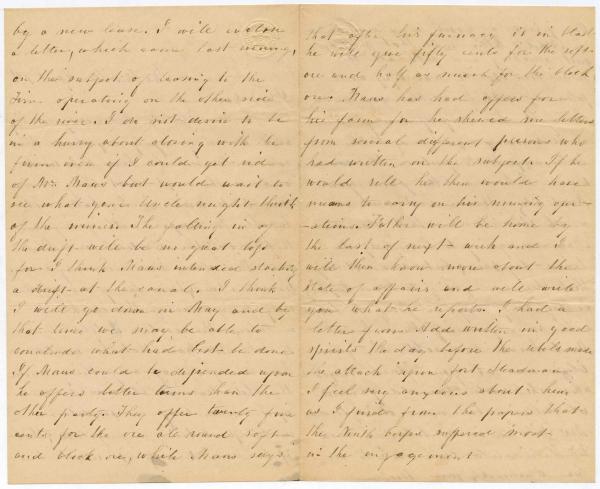 by a new lease. I will enclose
a letter, which came last evening,
on the subject of leasing to the
Firm operating on the other side
of the river. I do not desire to be
in a hurry about closing with the
firm even if I could get rid
of Mr. Maus but would wait to
see what your Uncle might think
of the mines. The falling in of
the drift will be no great loss
for I think Maus intended starting
a drift at the canal. I think
I will go down in May and by
that time we may be able to
conclude what had best be done
If Maus could be depended upon
he offers better terms than the
other party. They offer twenty five
cents for the ore all round soft
and block ore, while Maus says
that after his furnace is in blast
he will give fifty cents for the soft
ore and half as much for the block
ore. Maus has had offers for
his farm for he shewed me letters
from several different persons who
had written on the subject. If he
would sell he then would have
means to carry on his mining oper-
-ations. Father will be home by
the last of next week and I
will then know more about the
state of affairs and will write
you what he reports. I had a
letter from Add written in good
spirits the day before the rebels made
the attack upon fort Steadman
I feel very anxious about him
as I judge from the papers that
the Ninth Corps suffered most
in the engagement